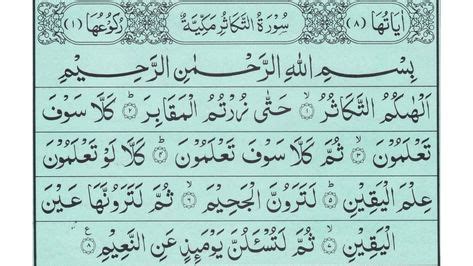 اٰيَاتُهَا (٨) سُوْرَةُ التَّكَاثُرِ مَكِّيَّةٌ رُكُوْعُهَا (١)
بِسْمِ اللّٰهِ الرَّحْمٰنِ الرَّحِيْمِ
اَلْهٰىكُمُ التَّكَاثُرُ ۙ‏١ حَتّٰى زُرْتُمُ الْمَقَابِرَ ؕ‏٢ كَلَّا سَوْفَ
تَعْلَمُوْنَ ۙ‏٣ ثُمَّ كَلَّا سَوْفَ تَعْلَمُوْنَ ؕ‏٤ كَلَّا لَوْ تَعْلَمُوْنَ
عِلْمَ الْيَقِيْنِ ؕ‏٥ لَتَرَوُنَّ الْجَحِيْمَ ۙ‏٦ ثُمَّ لَتَرَوُنَّهَا عَيْنَ
الْيَقِيْنِ ۙ‏٧ ثُمَّ لَتُسْئَلُنَّ يَوْمَئِذٍ عَنِ النَّعِيْمِ ٨ ع